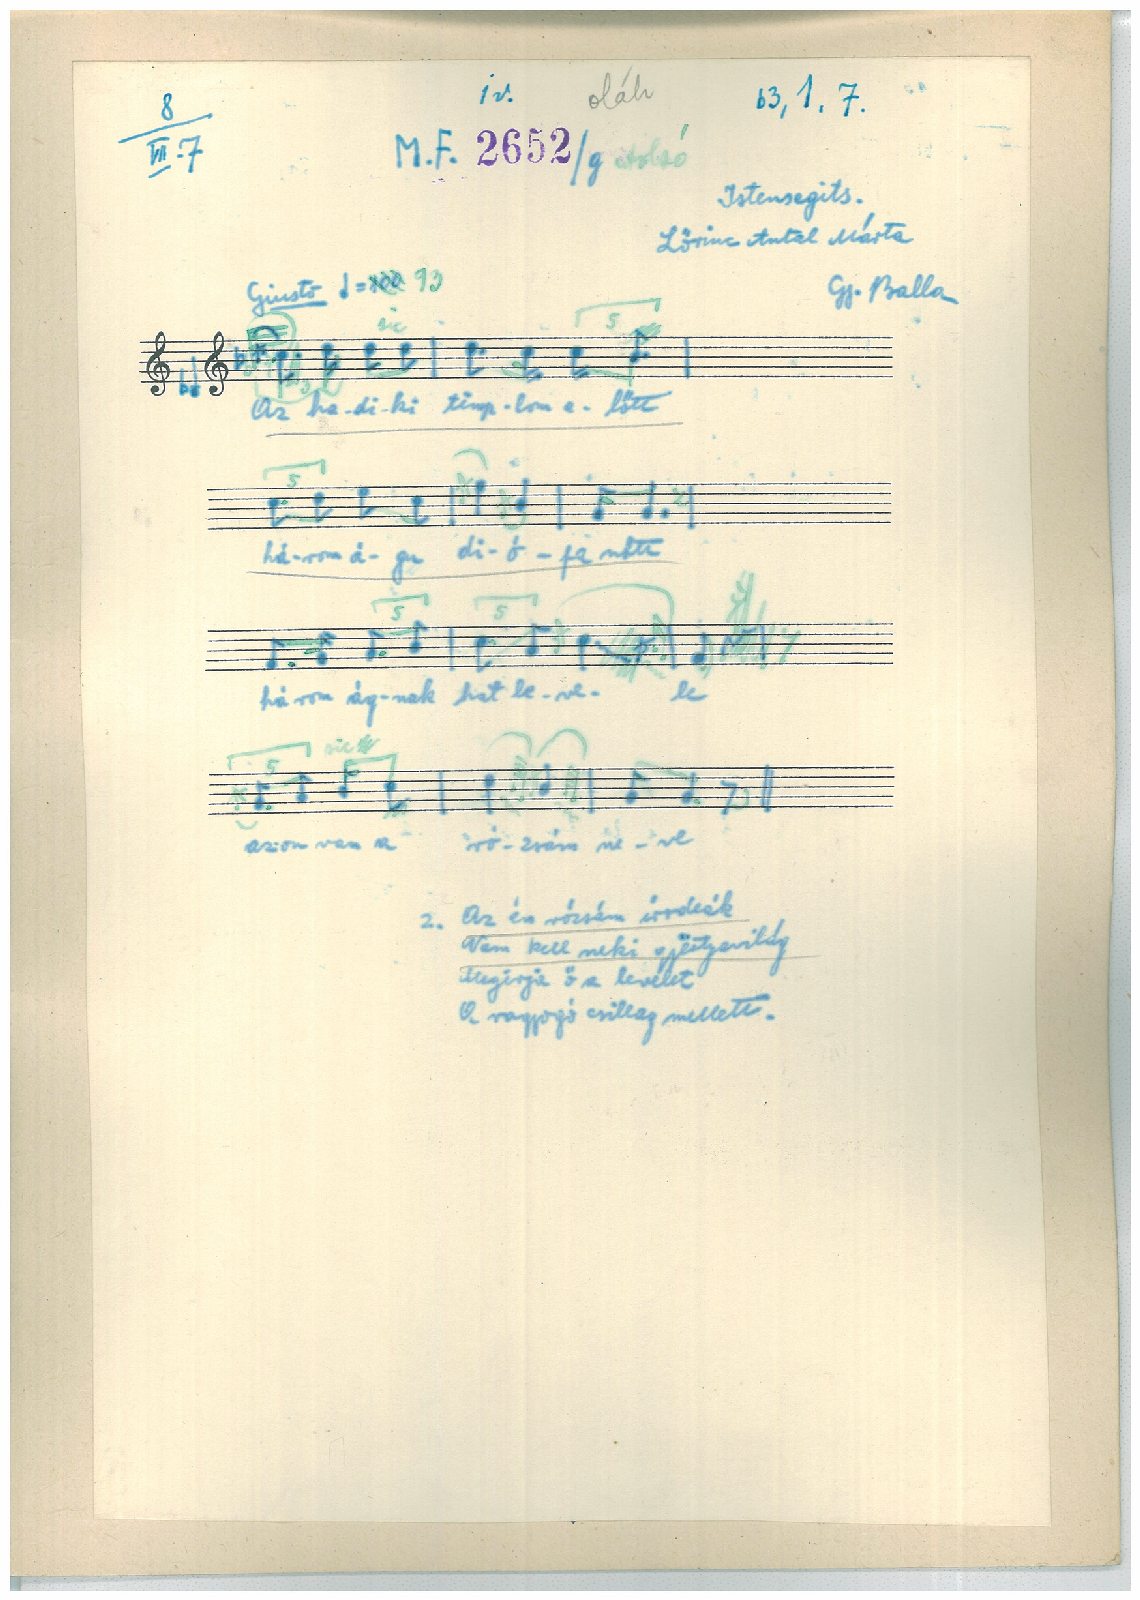 iv. oláh b3, 1. 7.
8
VII.7
M.F. 2652/g utolsó
Istensegits.
Lőrinc Antal Márta
Gy. Balla
Giusto ♩=100 93
sic
5
Az ha-di-ki temp-lom e-lőtt
5
há-rom á-gu di-ó-fa nőtt
5 5
három ág-nak hat le-ve-le
5 sic
azon van a ró-zsám ne-ve
2. Az én rózsám irodeák
Nem kell neki gyertyavilág
Megirja ő a levelet
A ragyogó csillag mellett.